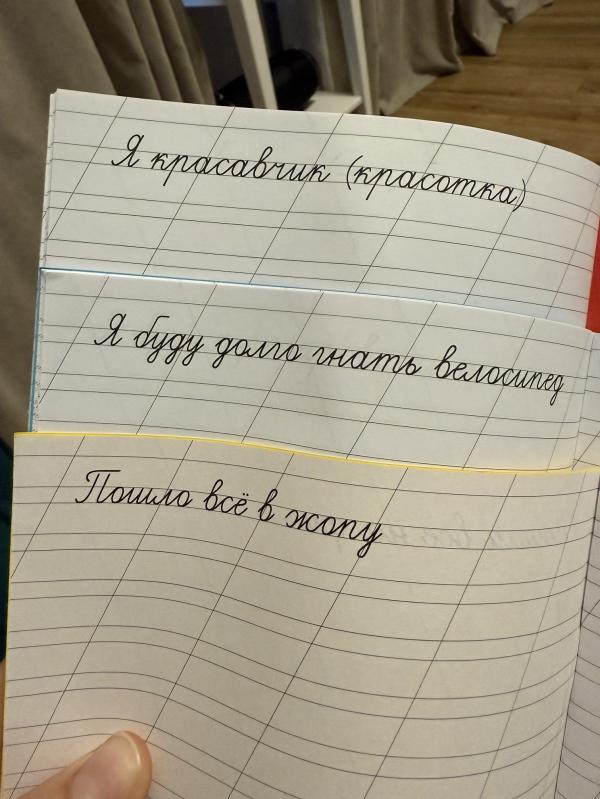 Я красавчик (красотка)
Я буду долго гнать велосипед
Пошло всё в жопу